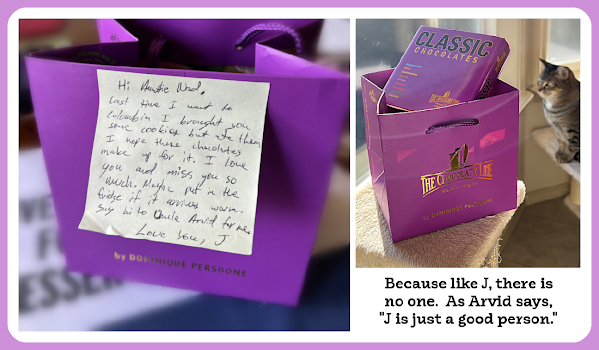 Hi Auntie Nad,
Last time I went to
Colombia I brought you
some cookies but ate them
I hope these chocolates
make up for it. I love
you and miss you so
much. Maybe put in the
fridge if it arrives warm.
Say hi to Uncle Arvid for me
Love you, J
by DOMINIQUE PERSOONE
CLASSIC
CHOCOLATES
THE CHOCOLATE LINE
by DOMINIQUE PERSOONE
Because like J, there is
no one. As Arvid says,
"J is just a good person."